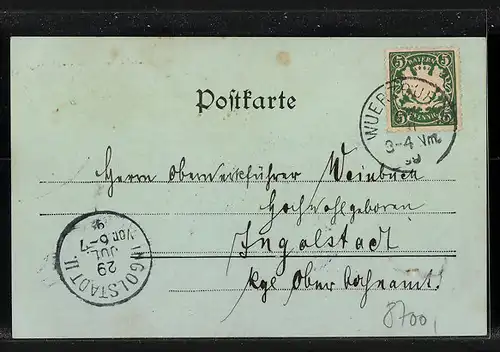 5 BAYERN 5
5 PFENNIG 5
WUERZBURG
3-4 Vm.
98
Postkarte
Herrn Oberwerkführer Weinbuch
Hochwohlgeboren
Ingolstadt
kgl. Ober bahnamt.
INGOLSTADT II
29
JUL
VOR 6-7
8700,